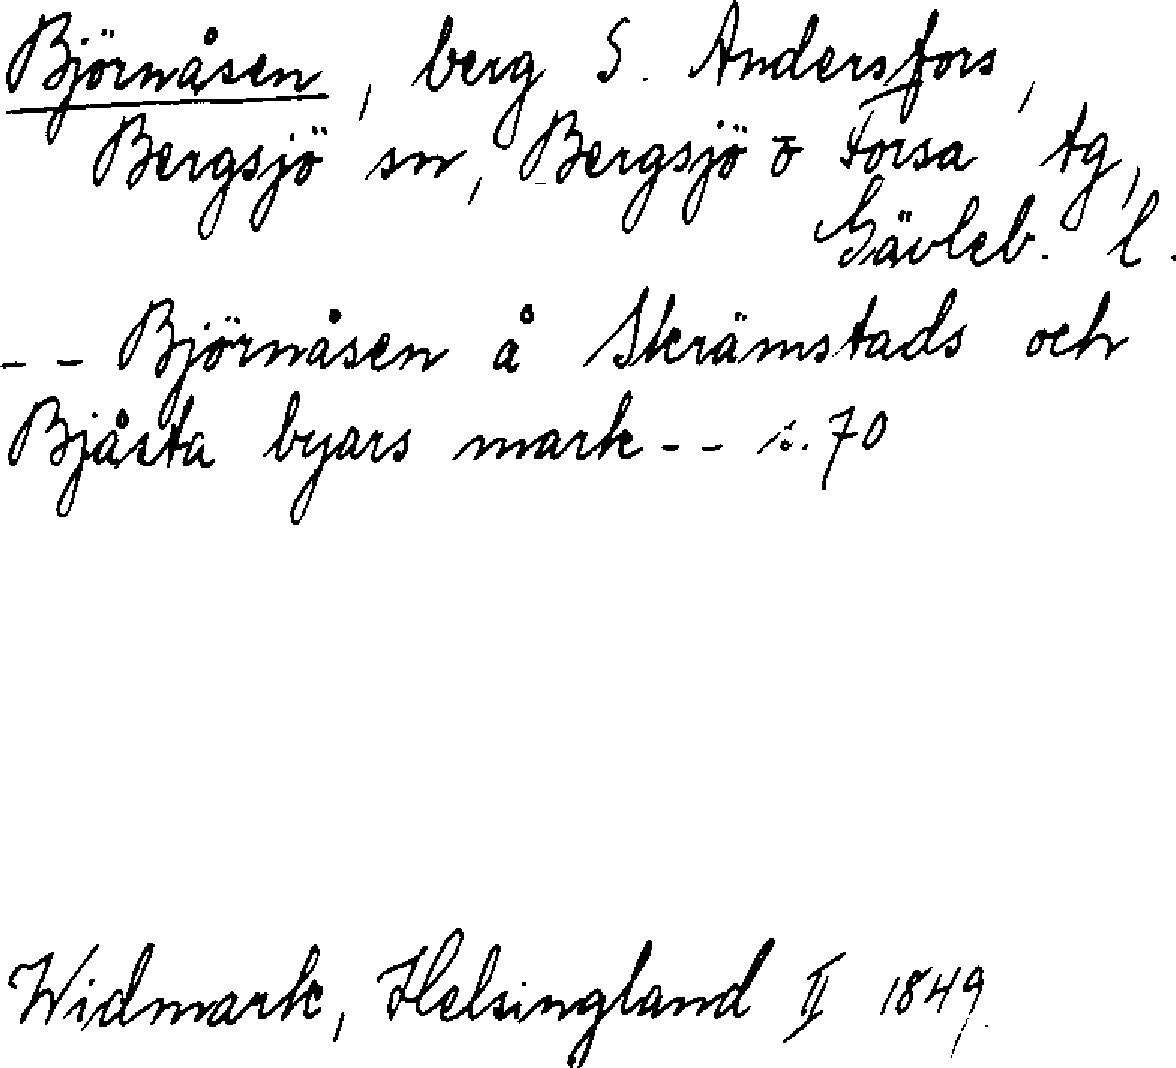 Björnåsen, berg S. Andersfors,
Bergsjö sn, Bergsjö o Forsa tg,
Gävleb. l.
-- Björnåsen å Skrämstads och
Bjåsta byars mark -- s. 70
Widmark, Helsingland II 1849.